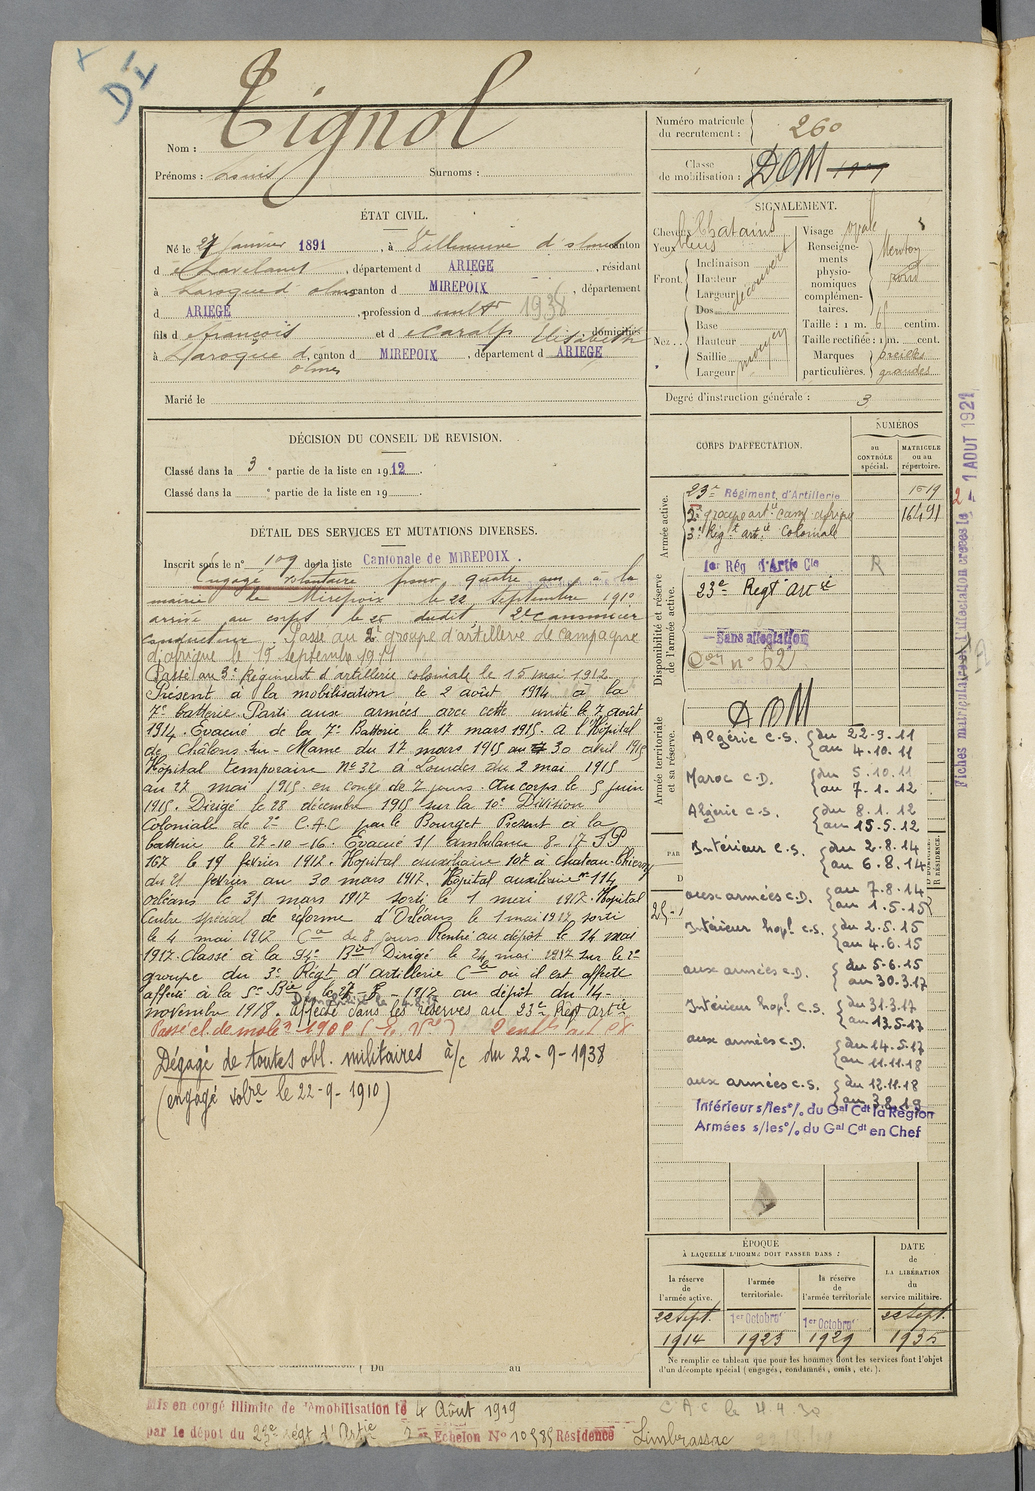 D
Tignol
Nom :
Prénoms : Louis Surnoms :
ÉTAT CIVIL.
Né le 27 Janvier 1891, à Villeneuve d'olmes canton
d e Lavelanet, département d ARIEGE, résidant
à Laroque d'olmes canton d MIREPOIX, département
d ARIEGE, profession d cultr 1938
fils d e françois et d e Caralp Elisabeth domiciliés
à Laroque d'olmes, canton d MIREPOIX, département d ARIEGE
Marié le
DÉCISION DU CONSEIL DE REVISION.
Classé dans la 3e partie de la liste en 1912.
Classé dans la e partie de la liste en 19
DÉTAIL DES SERVICES ET MUTATIONS DIVERSES.
Inscrit sous le n° 109 de la liste Cantonale de MIREPOIX.
Engagé volontaire pour quatre ans à la
mairie de Mirepoix le 22 Septembre 1910
arrivé au corps le 25 dudit, 2e cannonier
conducteur. Passé au 2e groupe d'artillerie de campagne
d'afrique le 19 septembre 1911
Passé au 3e Régiment d'artillerie coloniale le 15 mai 1912.
Présent à la mobilisation le 2 août 1914 à la
7e batterie. Parti aux armées avec cette unité le 7 août
1914. Evacué de la 7e Batterie le 17 mars 1915. a l'Hôpital
de Châlons-sur-Marne du 17 mars 1915 au 30 avril 1915
Hôpital temporaire N° 32 à Lourdes du 2 mai 1915
au 27 mai 1915. en congé de 7 jours. Au corps le 5 juin
1915. Dirigé le 28 décembre 1915 sur la 10e Division
Coloniale de 2e C.A.C par le Bourget Présent à la
batterie le 27-10-16. Evacué s/ ambulance 8-17 S.P
167 le 19 février 1917. Hopital auxiliaire 107 à Chateau-Thierry
du 21 février au 30 mars 1917. Hôpital auxiliaire n° 114
orléans le 31 mars 1917 sorti le 1 mai 1917. Hôpital
Centre spécial de réforme d'Orléans le 1 mai 1917 sorti
le 4 mai 1917 Con de 8 jours Rentré au dépôt le 14 mai
1917. Classé à la 94e Brie Dirigé le 24 mai 1917 sur le 2e
groupe du 3e Régt d'artillerie Cle où il est affecté
affecté à la 5e Brie au dépôt du 14-
novembre 1918. affecté dans les réserves au 23e Régt artie
Passé cl. de mobon
Dégagé de toutes obl. militaires à/c du 22-9-1938
(engagé volre le 22-9-1910)
Du au
Mis en congé illimité de démobilisation le 4 Août 1919
par le dépot du 23e Régt d'Artie 2e Echelon N° 10585 Résidence Limbrassac
Numéro matricule du recrutement : 260
Classe de mobilisation : DOM
SIGNALEMENT.
Cheveux Chatains
Yeux bleus
Front. Inclinaison
Hauteur découvert
Largeur
Nez. Dos
Base
Hauteur moyen
Saillie
Largeur
Visage ovale
Renseignements physionomiques complémentaires. Menton rond
Taille : 1 m. 61 centim.
Taille rectifiée : 1 m. cent.
Marques particulières. oreilles grandes
Degré d'instruction générale : 3
CORPS D'AFFECTATION.
NUMÉROS
au CONTRÔLE spécial.
MATRICULE ou au répertoire.
Armée active.
23e Régiment d'Artillerie 1519
2e groupe artie camp afrique 16491
3e Régt artie Coloniale
Disponibilité et réserve de l'armée active.
1er Rég d'Artie Cle R
23e Regt artie
Sans affectation
n° 62
Armée territoriale et sa réserve.
DOM
Algérie C.S. du 22-9-11 au 4.10.11
Maroc C.D. du 5.10.11 au 7.1.12
Algérie C.S. du 8.1.12 au 15.5.12
Intérieur C.S. du 2.8.14 au 6.8.14
aux armées C.D. au 7.8.14 au 1.5.15
Intérieur hopl C.S. du 2.5.15 au 4.6.15
aux armées C.D. du 5-6.15 au 30.3.17
Intérieur hopl C.S. du 31.3.17 au 13.5.17
aux armées C.D. du 14.5.17 au 11.11.18
aux armées C.S. du 12.11.18 au 3.8.19
Intérieur s/les % du Gal Cdt la Région
Armées s/les % du Gal Cdt en Chef
ÉPOQUE
À LAQUELLE L'HOMME DOIT PASSER DANS :
la réserve de l'armée active. 22 Sept. 1914
l'armée territoriale. 1er Octobre 1923
la réserve de l'armée territoriale 1er Octobre 1929
DATE de LA LIBÉRATION du service militaire. 22 Sept.
Ne remplir ce tableau que pour les hommes dont les services font l'objet
d'un décompte spécial (engagés, condamnés, omis, etc.).
C A C le
Fiches matricules et d'affectation créées le 1 AOUT 1921